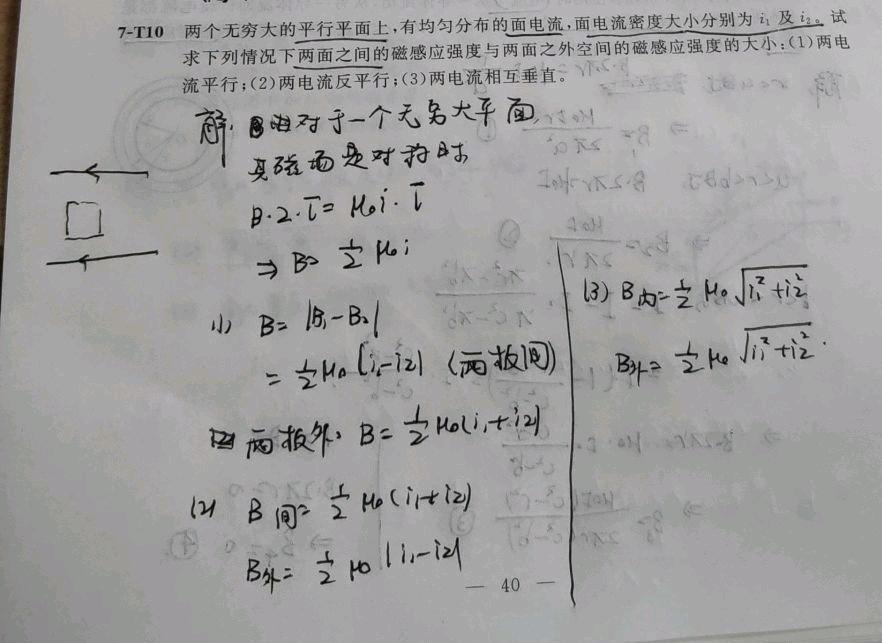 7-T10 两个无穷大的平行平面上,有均匀分布的面电流,面电流密度大小分别为 i₁ 及 i₂。试
求下列情况下两面之间的磁感应强度与两面之外空间的磁感应强度的大小:(1)两电
流平行;(2)两电流反平行;(3)两电流相互垂直。
解: 对于一个无穷大平面
其磁场是对称时
B·2·l = μ₀i·l
⇒ B = 1/2 μ₀i
(1) B = |B₁ - B₂|
= 1/2 μ₀ |i₁-i₂| (两板间)
两板外: B = 1/2 μ₀(i₁+i₂)
(2) B间 = 1/2 μ₀(i₁+i₂)
B外 = 1/2 μ₀ |i₁-i₂|
(3) B内 = 1/2 μ₀ √(i₁²+i₂²)
B外 = 1/2 μ₀ √(i₁²+i₂²).
— 40 —